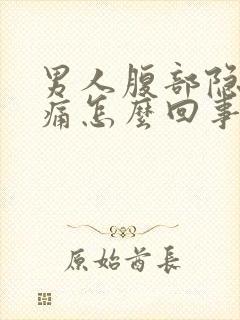 男人腹部隐
痛怎麽回事
原始酋長